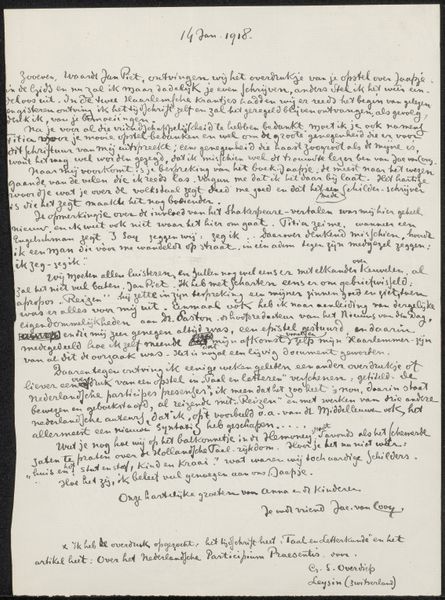 14 Jan. 1918.
Zooeven, Waarde Jan Piet, ontvingen wij het overdrukje van je opstel over Jaapje
in de Gids en nu zal ik maar dadelijk je even schrijven, anders stel ik het weer ein-
deloos uit. In de twee Haarlemsche krantjes hadden wij er reeds het begin van gelezen
en gisteren ontving ik het tijdschrift zelf en zal het geregeld blijven ontvangen als gevolg,
denk ik, van je bemoeiingen.
Na je voor al die vriendschappelijkheid te hebben bedankt, moet ik je ook namens
Titia voor je mooie opstel bedanken en wel om de groote genegenheid die er voor
dit schrijfsel van mij uit spreekt; een genegenheid die haast zoo groot als de mijne is,
want het mag wel worden gezegd, dat ik misschien wel de trouwste lezer ben van
Naar mij voorkomt is je bespreking van het boek Jaapje, de meest naar het wezen
gaande van de velen die ik reeds las. Vergun me dat ik het daar bij laat. Het hartig
woordje wat je over de volkstaal zegt deed me goed en dat het een schilder-schrijver
is die het zegt maakte het nog bizonder.
mede
Je opmerking over de invloed van het Shakespeare-vertalen was mij hier geheel
nieuw, en ik weet ook niet waar het hier om gaat. Titia zeine, wanneer een
Engelschman zegt "I say", zeggen wij: zeg ik. Daaraan denkend misschien, hoorde
ik een man die voor me wandelde op straat, in één adem tegen zijn medgezel zeggen:
"ik zeg-zeg ik"
Wij moeten allen luisteren, en zullen nog wel eens er met elkander over keuvelen, al
zal het niet veel baten, Jan Piet. Ik heb met Scharten eens er om gebriefwisseld,
apropos "Reizen". hij zette in zijn bespreking een mijner zinnen
was er alles voor mij uit. Denmaak
eigendommelijkheden aan Dr. Easton, de hoofdredacteur van het Nieuws van den Dag,
wie mij zeer genegen altijd was, een epistel gestuurd, en daarin
medegedeeld hoe ik zelf meende mijn afkomst zelfs mijn Haarlemmer-zijn
van dit de oorzaak was. Het is nogal een lijvig document geworden.
Daarentegen ontving ik eenige weken geleden een ander overdrukje of
liever een afdruk van een opstel in "Taal en Letteren" verschenen, getiteld "De
Nederlandsche participes presentes", ik meen dat het zoo heet, nou, daarin staat
bewezen en geboekstaafd, al reizende met "Reizen" en met werken van drie andere
nederlandsche auteurs, dat ik, op 't voorbeeld o.a. van de Middeleeuwen ook, het
allermeest een nieuwe Syntaxis heb geschapen....
Weet je nog hoe wij op het balkonnetje in de Hemony-straat 's avonds als het schemerde
zaten te praten over de Hollandsche Taal-rijkdom. Hoor je het nu niet weer:
"huis en hof" "stut en stof, kind en kraai" wat waren wij toch aardige schilders.
Hoe het zij, ik beleef veel genoegen aan ons Jaapje.
Onze hartelijke groeten van Anna en de kinderen
Je oude vriend Jac. van Looy.
x Ik heb de overdruk opgezocht: het tijdschrift heet: Taal en Letterkunde en het
artikel heet: Over het Nederlandsche Participium Praesentis. door
G. S. Overdiep
Leysin (Zwitserland)